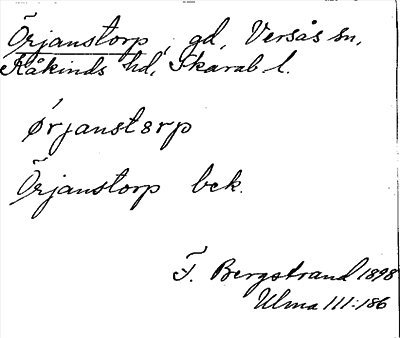 Örjanstorp, gd, Versås sn,
Kåkinds hd, Skarab l.
ørjanstərp
Örjanstorp bck.
T. Bergstrand 1898
Ulma III:186